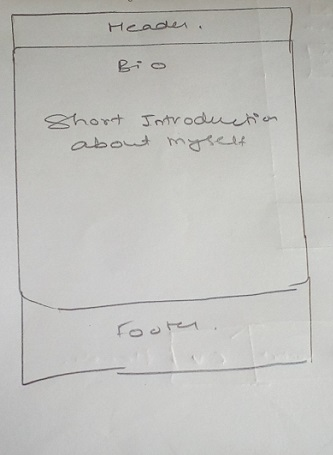 Header.
Bio
Short Introduction
about Myself
Footer.